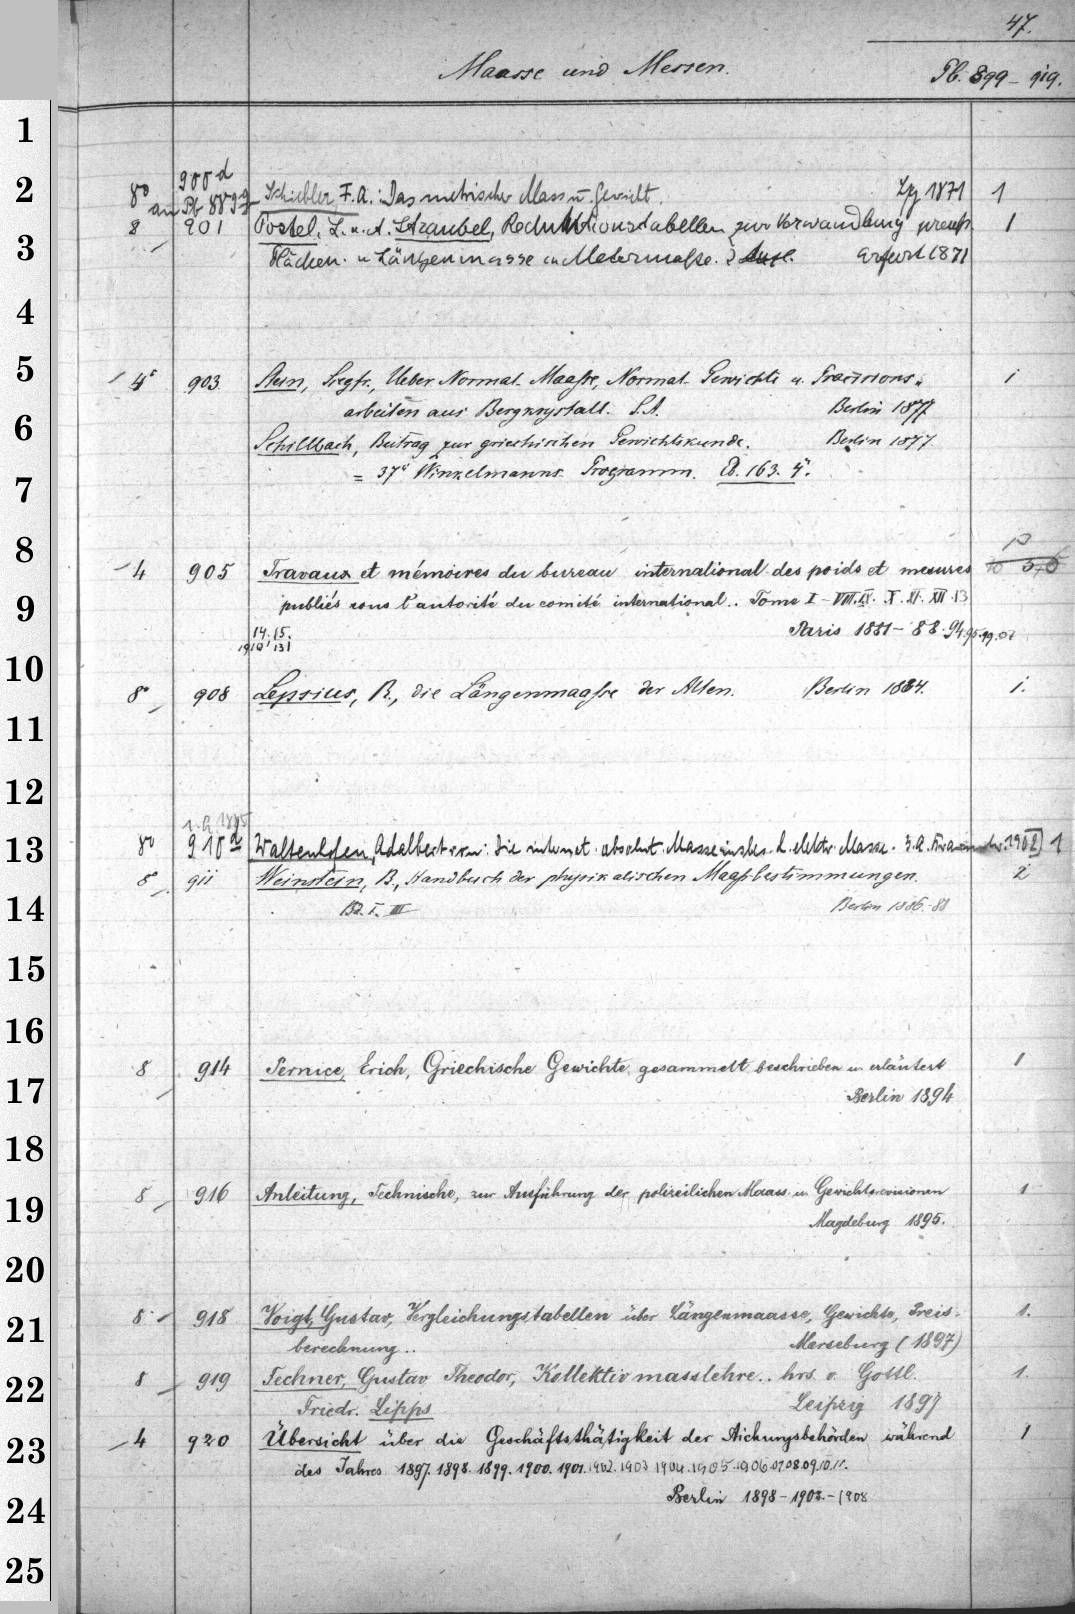 47.
Maasse und Messen.
Pb. 899 - 919.
1
900 d
2 8° an Pb 889 Schiebler, F. A.: Das metrische Mass u. Gewicht. Lpz 1871 1
8 901 Postel, L. u. A. Straubel, Reduktionstabellen zur Verwandlung preuss.
3 Flächen- u Längenmasse in Metermaße. 2 Aufl. Erfurt 1871 1
4
5 4° 903 Stein, Siegfr., Ueber Normal-Maaße, Normal-Gewichte u. Präcisions- 1
arbeiten aus Bergkrystall. S.A. Berlin 1877
6 Schillbach, Beitrag zur griechischen Gewichtskunde. Berlin 1877
7 = 37s Winckelmanns-Programm. 163. 4°.
8 4 905 Travaux et mémoires du bureau international des poids et mesures
9 publiés sous l'autorité du comité international.. Tome I - VIII. IX. X. XI. XII. 13
14. 15. Paris 1881 - 88. 94. 95. 99. 07
1910 131
10 8° 908 Lepsius, R., die Längenmaaße der Alten. Berlin 1884. 1.
11
12
13 8° 910 a Waltenhofen, Adalbert von: Die internat. absolut. Masse insbes. d. elektr. Masse. 3. A. Braunschw. 1902 1
8° 911 Weinstein, B., Handbuch der physikalischen Maaßbestimmungen. 2
14 Bd. I. II Berlin 1886-88
15
16
8 914 Pernice, Erich, Griechische Gewichte gesammelt beschrieben u. erläutert 1
17 Berlin 1894
18
19 8 916 Anleitung, Technische, zur Ausführung der polizeilichen Maass- u. Gewichtsrevisionen 1
Magdeburg 1895.
20
21 8° 918 Voigt, Gustav, Vergleichungstabellen über Längenmaasse, Gewichte, Preis- 1.
berechnung.. Merseburg (1897)
22 8 919 Fechner, Gustav Theodor, Kollektivmasslehre.. hrs. v. Gottl. 1.
Friedr. Lipps Leipzig 1897
23 4 920 Übersicht über die Geschäftsthätigkeit der Aichungsbehörden während 1
des Jahres 1897. 1898. 1899. 1900. 1901. 1902. 1903 1904. 1905. 1906 07 08. 09. 10. 11.
24 Berlin 1898 - 1903. - 1908
25